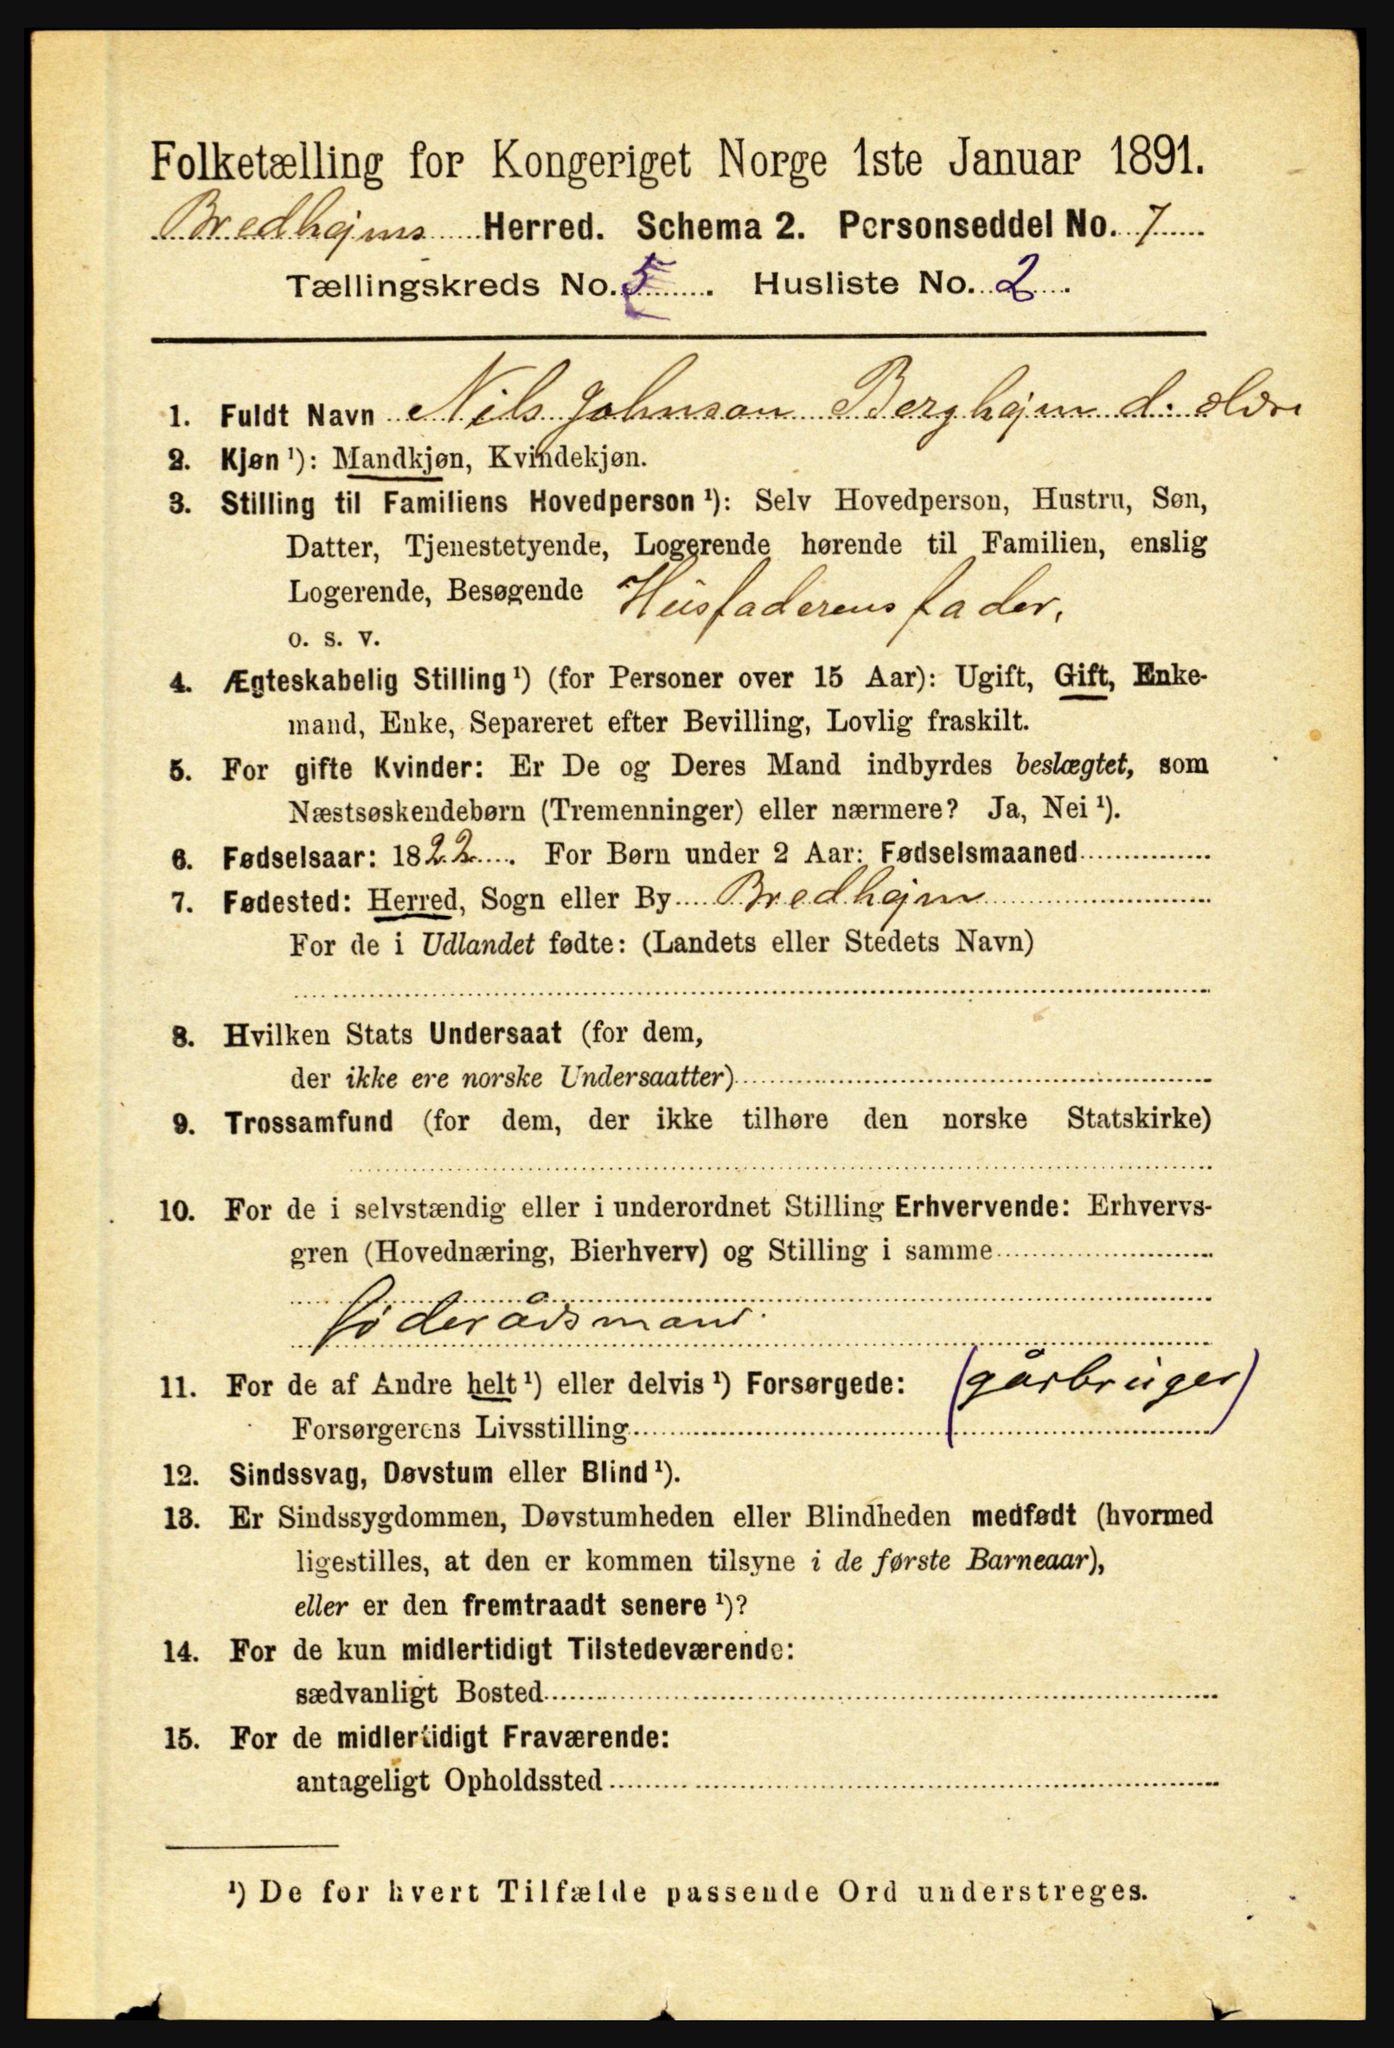 Folketælling for Kongeriget Norge 1ste Januar 1891.
Bredhejms Herred. Schema 2. Personseddel No. 7
Tællingskreds No. 5. Husliste No. 2.
1. Fuldt Navn Nils Johnson Berghejm d. ældre
2. Kjøn ¹): Mandkjøn, Kvindekjøn.
3. Stilling til Familiens Hovedperson ¹): Selv Hovedperson, Hustru, Søn,
Datter, Tjenestetyende, Logerende hørende til Familien, enslig
Logerende, Besøgende Husfaderens fader,
o. s. v.
4. Ægteskabelig Stilling ¹) (for Personer over 15 Aar): Ugift, Gift, Enke-
mand, Enke, Separeret efter Bevilling, Lovlig fraskilt.
5. For gifte Kvinder: Er De og Deres Mand indbyrdes beslægtet, som
Næstsøskendebørn (Tremenninger) eller nærmere? Ja, Nei ¹).
6. Fødselsaar: 1822. For Børn under 2 Aar: Fødselsmaaned
7. Fødested: Herred, Sogn eller By Bredhejm
For de i Udlandet fødte: (Landets eller Stedets Navn)
8. Hvilken Stats Undersaat (for dem,
der ikke ere norske Undersaatter)
9. Trossamfund (for dem, der ikke tilhøre den norske Statskirke)
10. For de i selvstændig eller i underordnet Stilling Erhvervende: Erhvervs-
gren (Hovednæring, Bierhverv) og Stilling i samme
föderådsmand.
11. For de af Andre helt ¹) eller delvis ¹) Forsørgede: (gårbruger)
Forsørgerens Livsstilling
12. Sindssvag, Døvstum eller Blind ¹).
13. Er Sindssygdommen, Døvstumheden eller Blindheden medfødt (hvormed
ligestilles, at den er kommen tilsyne i de første Barneaar),
eller er den fremtraadt senere ¹)?
14. For de kun midlertidigt Tilstedeværende:
sædvanligt Bosted
15. For de midlertidigt Fraværende:
antageligt Opholdssted
¹) De for hvert Tilfælde passende Ord understreges.